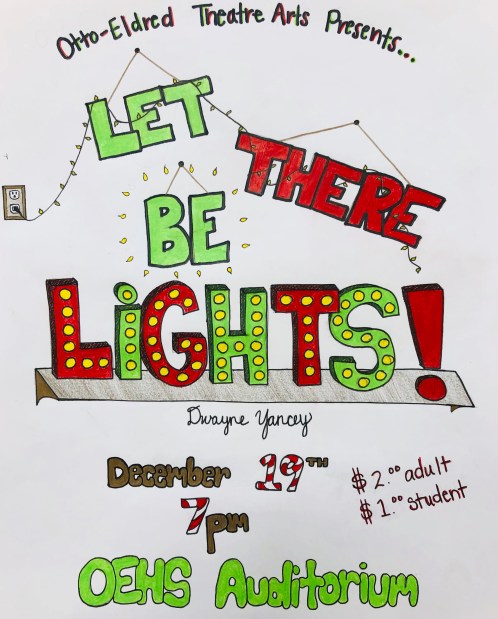 Otto-Eldred Theatre Arts Presents...
LET
THERE
BE
LiGHTS!
Dwayne Yancey
December 19TH
7pm
$2.00 adult
$1.00 student
OEHS Auditorium